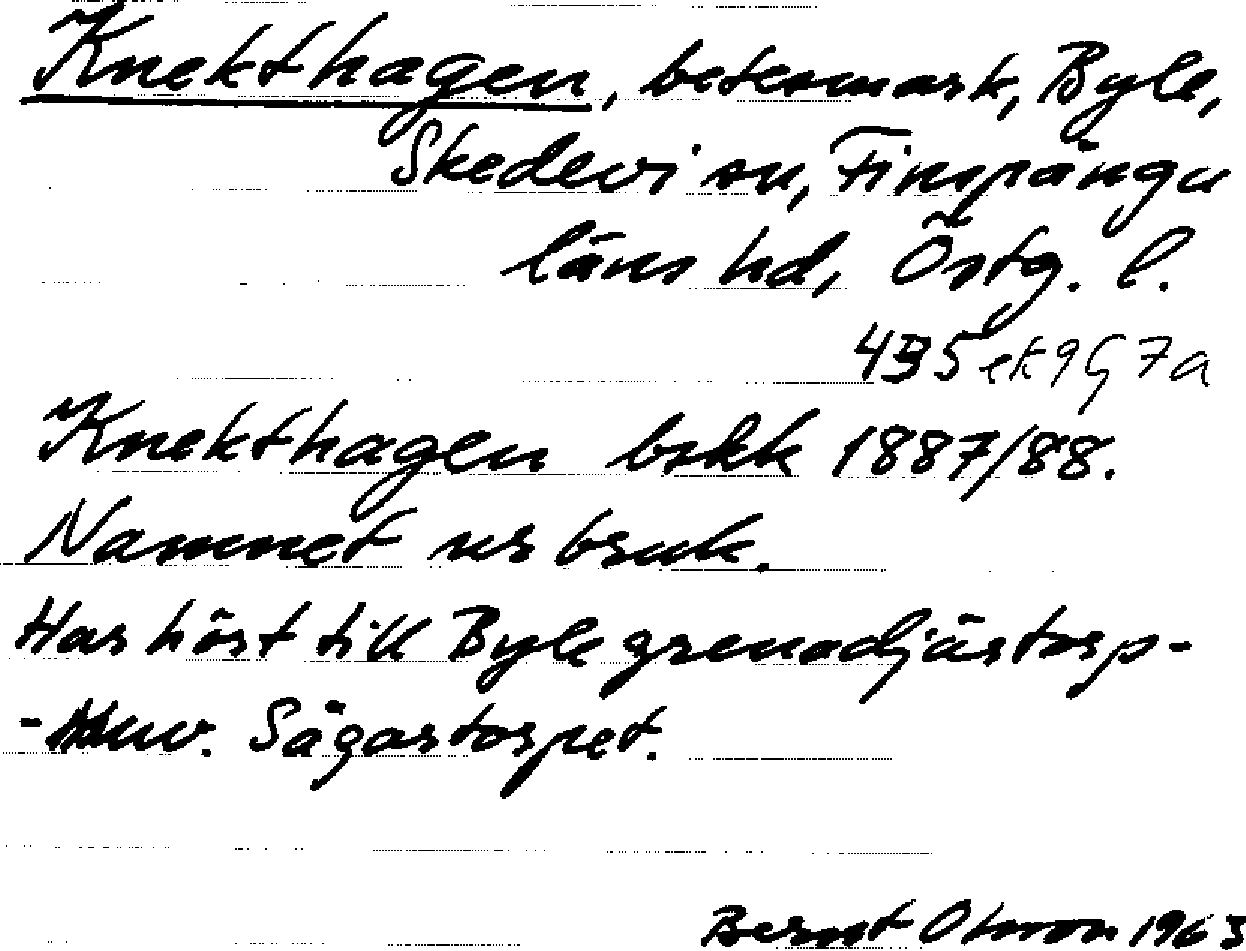 Knekthagen, betesmark, Byle,
Skedevi sn, Finspånga
läns hd, Östg. l.
435 ek 9G 7a
Knekthagen bskk 1887/88.
Namnet ur bruk.
Har hört till Byle grenadjärtorp-
-Nuv. Sågartorpet.
Bernt Olsson 1963